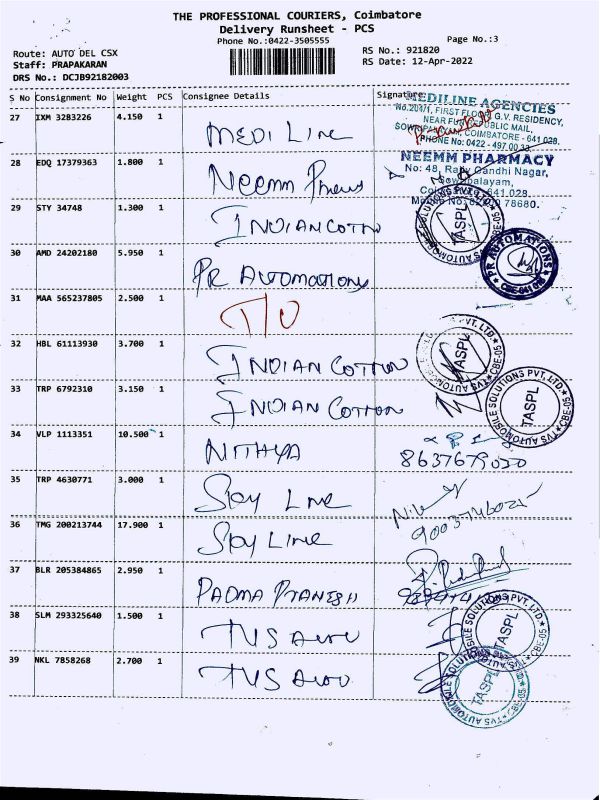 THE PROFESSIONAL COURIERS, Coimbatore
Delivery Runsheet - PCS
Phone No.:0422-3505555
Page No.:3
Route: AUTO DEL CSX
RS No.: 921820
Staff: PRAPAKARAN
RS Date: 12-Apr-2022
DRS No.: DCJB92182003
S No Consignment No Weight PCS Consignee Details Signature
MEDILINE AGENCIES
No.204/1, FIRST FLOOR G.V. RESIDENCY,
COIMBATORE - 641 028.
PHONE No: 0422 - 497.00
27 IXM 3283226 4.150 1 MEDI LINE
NEEMM PHARMACY
No: 48, Gandhi Nagar,
28 EDQ 17379363 1.800 1 Neemm
29 STY 34748 1.300 1 INDIAN COTTN
TASPL
30 AMD 24202180 5.950 1 PR AUTOMATIONS
PR AUTOMATIONS
31 MAA 565237805 2.500 1 T/U
32 HBL 61113930 3.700 1 INDIAN COTTON
TASPL
TVS AUTOMOBILE SOLUTIONS PVT. LTD CBE-05
33 TRP 6792310 3.150 1 INDIAN COTTON
TASPL
TVS AUTOMOBILE SOLUTIONS PVT. LTD. CBE-05
34 VLP 1113351 10.500 1 NITHYA
8637679020
35 TRP 4630771 3.000 1 Sky Line
36 TMG 200213744 17.900 1 Sky Line
37 BLR 205384865 2.950 1 PADMA PRANESH
38 SLM 293325640 1.500 1 TVS Auto
TASPL
39 NKL 7858268 2.700 1 TVS Auto
TASPL